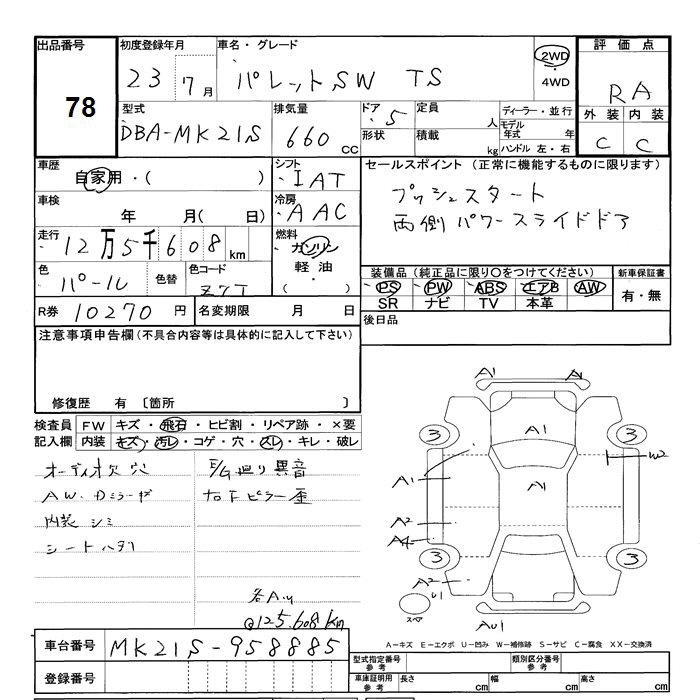 出品番号 初度登録年月 車名・グレード 評価点
78 23 7月 パレットSW TS 2WD ・ 4WD RA
型式 排気量 ドア 5 定員 人 ディーラー・並行 外装 内装
DBA-MK21S 660 cc 形状 積載 kg モデル年式 年 C C
ハンドル 左・右
車歴 シフト セールスポイント (正常に機能するものに限ります)
自家用・( ) IAT プッシュスタート
車検 年 月( 日) 冷房 AAC 両側パワースライドドア
走行 12万5千608km 燃料 ガソリン 軽油 ( )
装備品 (純正品に限り〇をつけてください) 新車保証書
色 パール 色替 色コード Z7T PS PW ABS エアB AW 有・無
SR ナビ TV 本革
R券 10270円 名変期限 月 日 後日品
注意事項申告欄 (不具合内容等は具体的に記入して下さい)
修復歴 有 〔箇所 〕
検査員 FW キズ・飛石・ヒビ割・リペア跡・×要
記入欄 内装 キズ・汚レ・コゲ・穴・スレ・キレ・破レ
オーディオ欠 穴 E/G廻り異音
AW・Dミラーキズ
内装シミ
シートヘタリ
各AU
@125.608km
A1 A1
A1
3 3
W2
A1 A1
A2
A4
3 3
A2
U1
スペア
AU1
車台番号 MK21S-958885
A－キズ E－エクボ U－凹み W－補修跡 S－サビ C－腐食 XX－交換済
登録番号
型式指定番号 参考 類別区分番号 参考
車庫証明用 参考 長さ cm 幅 cm 高さ cm